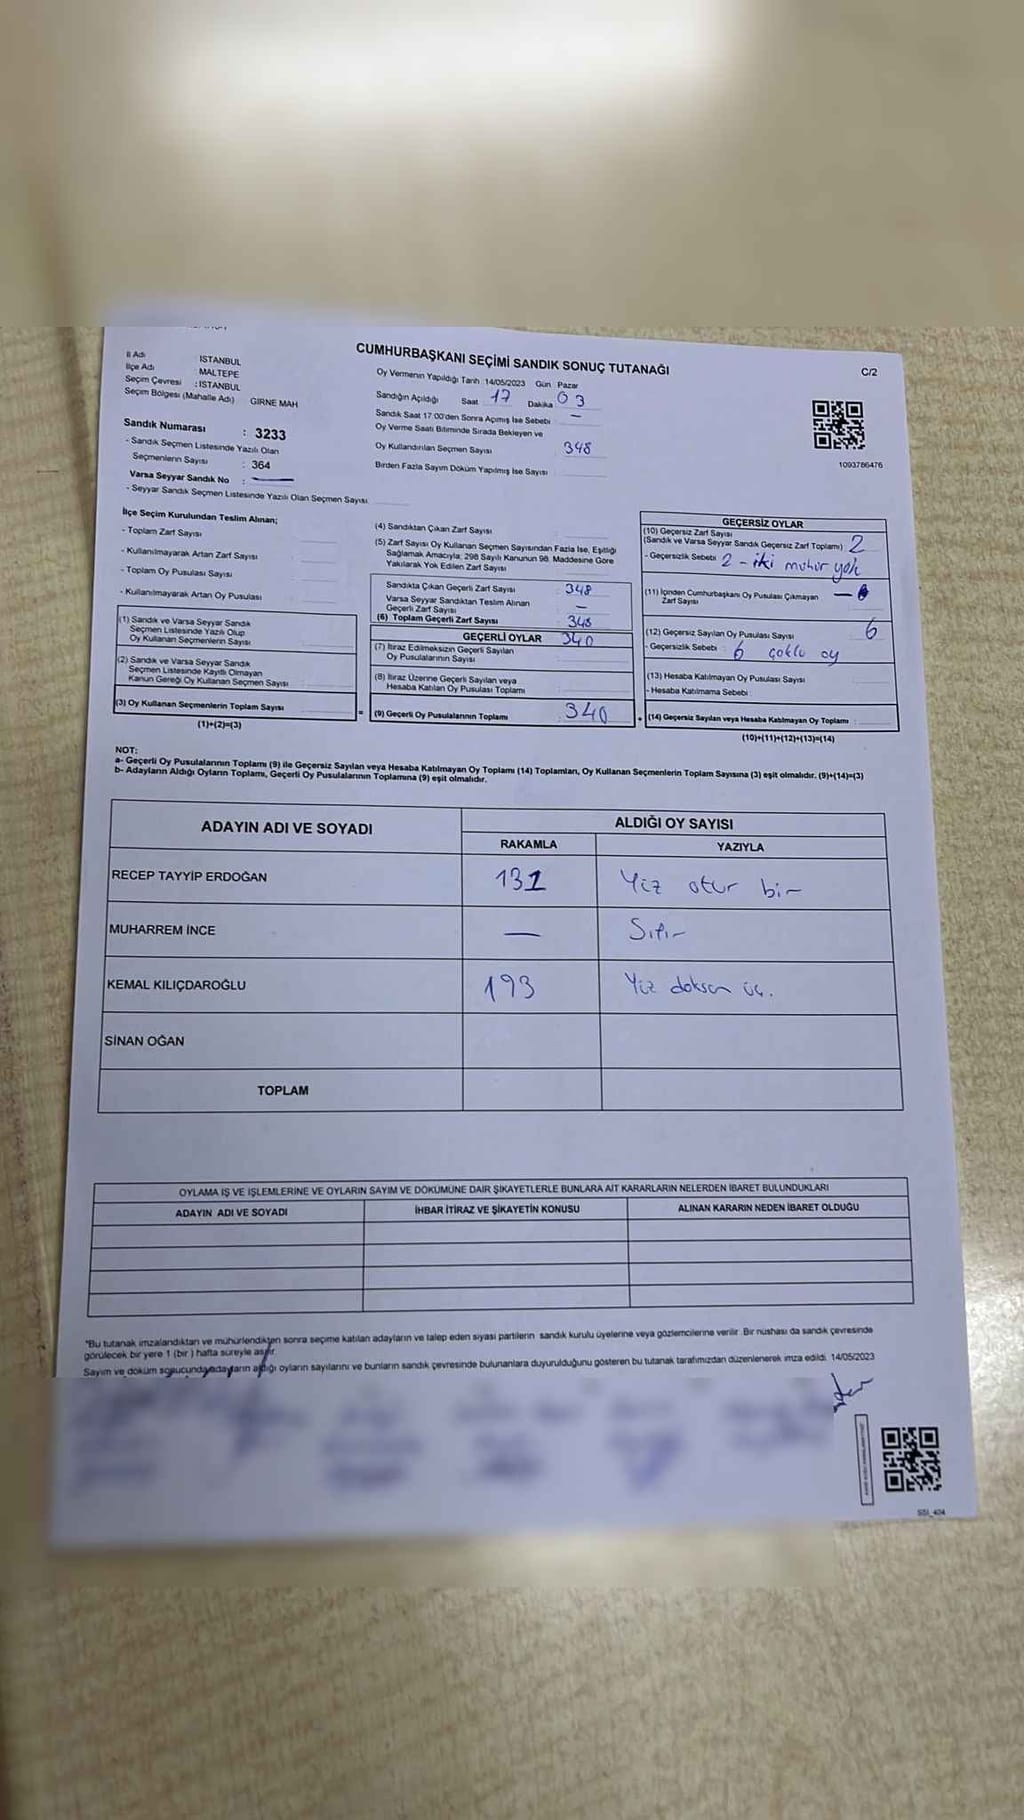 CUMHURBAŞKANI SEÇİMİ SANDIK SONUÇ TUTANAĞI
C/2
İl Adı ISTANBUL
İlçe Adı MALTEPE
Seçim Çevresi : ISTANBUL
Seçim Bölgesi (Mahalle Adı) GİRNE MAH
Sandık Numarası : 3233
- Sandık Seçmen Listesinde Yazılı Olan
Seçmenlerin Sayısı : 364
Varsa Seyyar Sandık No : —
- Seyyar Sandık Seçmen Listesinde Yazılı Olan Seçmen Sayısı
Oy Vermenin Yapıldığı Tarih 14/05/2023 Gün Pazar
Sandığın Açıldığı Saat 17 Dakika 03
Sandık Saat 17:00'den Sonra Açımış İse Sebebi —
Oy Verme Saati Bitiminde Sırada Bekleyen ve
Oy Kullandırılan Seçmen Sayısı 348
Birden Fazla Sayım Döküm Yapılmış İse Sayısı
1093786476
İlçe Seçim Kurulundan Teslim Alınan;
- Toplam Zarf Sayısı
- Kullanılmayarak Artan Zarf Sayısı
- Toplam Oy Pusulası Sayısı
- Kullanılmayarak Artan Oy Pusulası
(1) Sandık ve Varsa Seyyar Sandık
Seçmen Listesinde Yazılı Olup
Oy Kullanan Seçmenlerin Sayısı
(2) Sandık ve Varsa Seyyar Sandık
Seçmen Listesinde Kayıtlı Olmayan
Kanun Gereği Oy Kullanan Seçmen Sayısı
(3) Oy Kullanan Seçmenlerin Toplam Sayısı
(1)+(2)=(3)
(4) Sandıktan Çıkan Zarf Sayısı
(5) Zarf Sayısı Oy Kullanan Seçmen Sayısından Fazla İse, Eşitliği
Sağlamak Amacıyla; 298 Sayılı Kanunun 98. Maddesine Göre
Yakılarak Yok Edilen Zarf Sayısı
Sandıkta Çıkan Geçerli Zarf Sayısı : 348
Varsa Seyyar Sandıktan Teslim Alınan
Geçerli Zarf Sayısı —
(6) Toplam Geçerli Zarf Sayısı 348
GEÇERLİ OYLAR 340
(7) İtiraz Edilmeksizin Geçerli Sayılan
Oy Pusulalarının Sayısı
(8) İtiraz Üzerine Geçerli Sayılan veya
Hesaba Katılan Oy Pusulası Toplamı
= (9) Geçerli Oy Pusulalarının Toplamı 340 +
GEÇERSİZ OYLAR
(10) Geçersiz Zarf Sayısı
(Sandık ve Varsa Seyyar Sandık Geçersiz Zarf Toplamı) 2
- Geçersizlik Sebebi : 2 - iki mühür yok
(11) İçinden Cumhurbaşkanı Oy Pusulası Çıkmayan
Zarf Sayısı —
(12) Geçersiz Sayılan Oy Pusulası Sayısı 6
- Geçersizlik Sebebi : 6 çoklu oy
(13) Hesaba Katılmayan Oy Pusulası Sayısı
- Hesaba Katılmama Sebebi :
(14) Geçersiz Sayılan veya Hesaba Katılmayan Oy Toplamı :
(10)+(11)+(12)+(13)=(14)
NOT:
a- Geçerli Oy Pusulalarının Toplamı (9) ile Geçersiz Sayılan veya Hesaba Katılmayan Oy Toplamı (14) Toplamları, Oy Kullanan Seçmenlerin Toplam Sayısına (3) eşit olmalıdır. (9)+(14)=(3)
b- Adayların Aldığı Oyların Toplamı, Geçerli Oy Pusulalarının Toplamına (9) eşit olmalıdır.
ADAYIN ADI VE SOYADI
ALDIĞI OY SAYISI
RAKAMLA YAZIYLA
RECEP TAYYİP ERDOĞAN 131 Yüz otuz bir
MUHARREM İNCE — Sıfır
KEMAL KILIÇDAROĞLU 193 Yüz doksan üç.
SİNAN OĞAN
TOPLAM
OYLAMA İŞ VE İŞLEMLERİNE VE OYLARIN SAYIM VE DÖKÜMÜNE DAİR ŞİKAYETLERLE BUNLARA AİT KARARLARIN NELERDEN İBARET BULUNDUKLARI
ADAYIN ADI VE SOYADI İHBAR İTİRAZ VE ŞİKAYETİN KONUSU ALINAN KARARIN NEDEN İBARET OLDUĞU
*Bu tutanak imzalandıktan ve mühürlendikten sonra seçime katılan adayların ve talep eden siyasi partilerin sandık kurulu üyelerine veya gözlemcilerine verilir. Bir nüshası da sandık çevresinde
görülecek bir yere 1 (bir) hafta süreyle asılır.
Sayım ve döküm sonucunda adayların aldığı oyların sayılarını ve bunların sandık çevresinde bulunanlara duyurulduğunu gösteren bu tutanak tarafımızdan düzenlenerek imza edildi. 14/05/2023
SSI_404